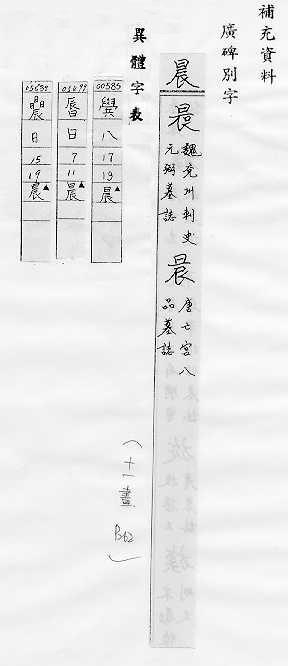 補充資料
廣碑別字
晨
晨
魏兗州刺史
元弼墓誌
晨
唐亡宮八
品墓誌
(十一畫
P.62
)
異體字表
00585
八
17
19
晨▲
01699
日
7
11
晨▲
日
15
19
晨▲